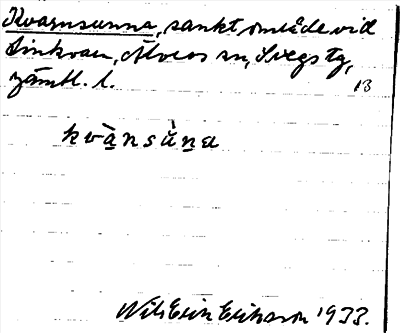 Kvarnsunna, sankt område vid
Linkvarn, Älvros sn, Svegs tg,
jämtl. l. 13
kvànsùna
Nils Erik Eriksson 1933.